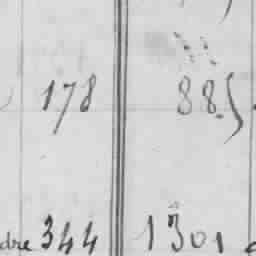 178 88.5
dre 344 1301